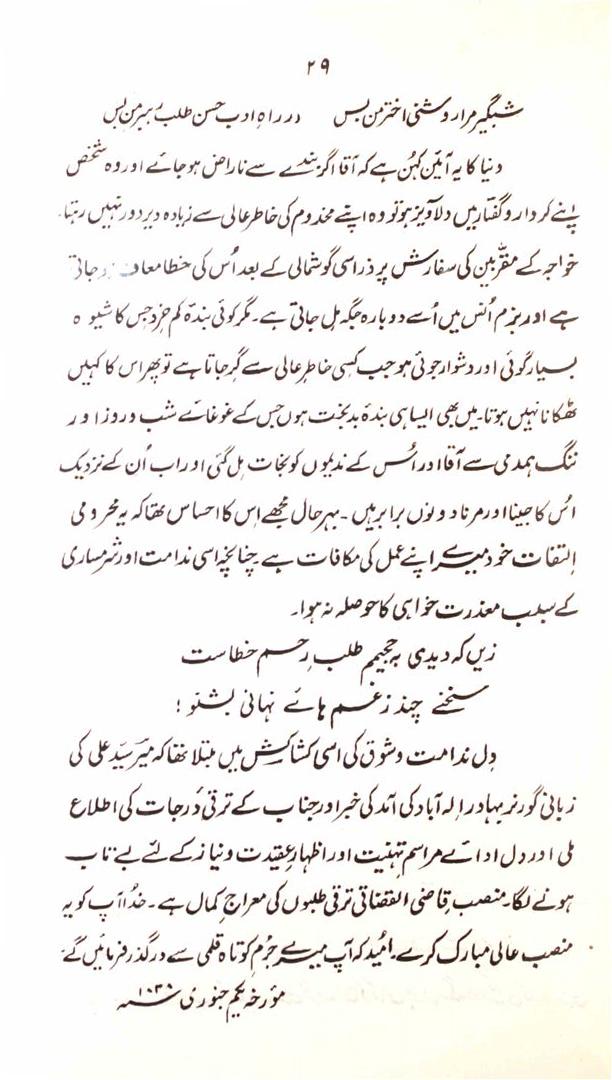 ۲۹
شبگیر مرا روشنی اختر من بس در راہِ ادب حسن طلب رہبر من بس
دنیا کا یہ آئین کہن ہے کہ آقا اگر بندے سے ناراض ہو جائے اور وہ شخص
اپنے کردار و گفتار میں دلآویز ہو تو وہ اپنے مخدوم کی خاطر عالی سے زیادہ دیر دور نہیں رہتا۔
خواجہ کے مقربین کی سفارش پر ذرا سی گوشمالی کے بعد اُس کی خطا معاف ہو جاتی
ہے اور بزم اُنس میں اُسے دوبارہ جگہ مل جاتی ہے۔ مگر کوئی بندۂ کم خرد جس کا شیوہ
بسیار گوئی اور دشوار جوئی ہو جب کسی خاطرِ عالی سے گر جاتا ہے تو پھر اس کا کہیں
ٹھکانا نہیں ہوتا۔ میں بھی ایسا ہی بندۂ بدبخت ہوں جس کے غوغائے شب و روز اور
ننگ ہمدمی سے آقا اور اُس کے ندیموں کو نجات مل گئی اور اب اُن کے نزدیک
اُس کا جینا اور مرنا دونوں برابر ہیں۔ بہر حال مجھے اس کا احساس تھا کہ یہ محرومی
اِلتفات خود میرے اپنے عمل کی مکافات ہے۔ چنانچہ اسی ندامت اور شرمساری
کے سبب معذرت خواہی کا حوصلہ نہ ہوا۔
زیں کہ دیدی بہ جحیم طلب رحم خطاست
سخنے چند ز غم ہائے نہانی بشنو!
دِل ندامت و شوق کی اسی کشاکش میں مبتلا تھا کہ میر سیّد علی کی
زبانی گورنر بہادر اِلہ آباد کی آمد کی خبر اور جناب کے ترقی دَرجات کی اطلاع
ملی اور دل ادائے مراسم تہنیت اور اظہارِ عقیدت و نیاز کے لئے بے تاب
ہونے لگا۔ منصب قاضی القضاتی ترقی طلبوں کی معراجِ کمال ہے۔ خدا آپ کو یہ
منصب عالی مبارک کرے۔ اُمید کہ آپ میرے جُرم کوتاہ قلمی سے درگذر فرمائیں گے
مؤرخہ یکم جنوری ۱۸۳۸ء